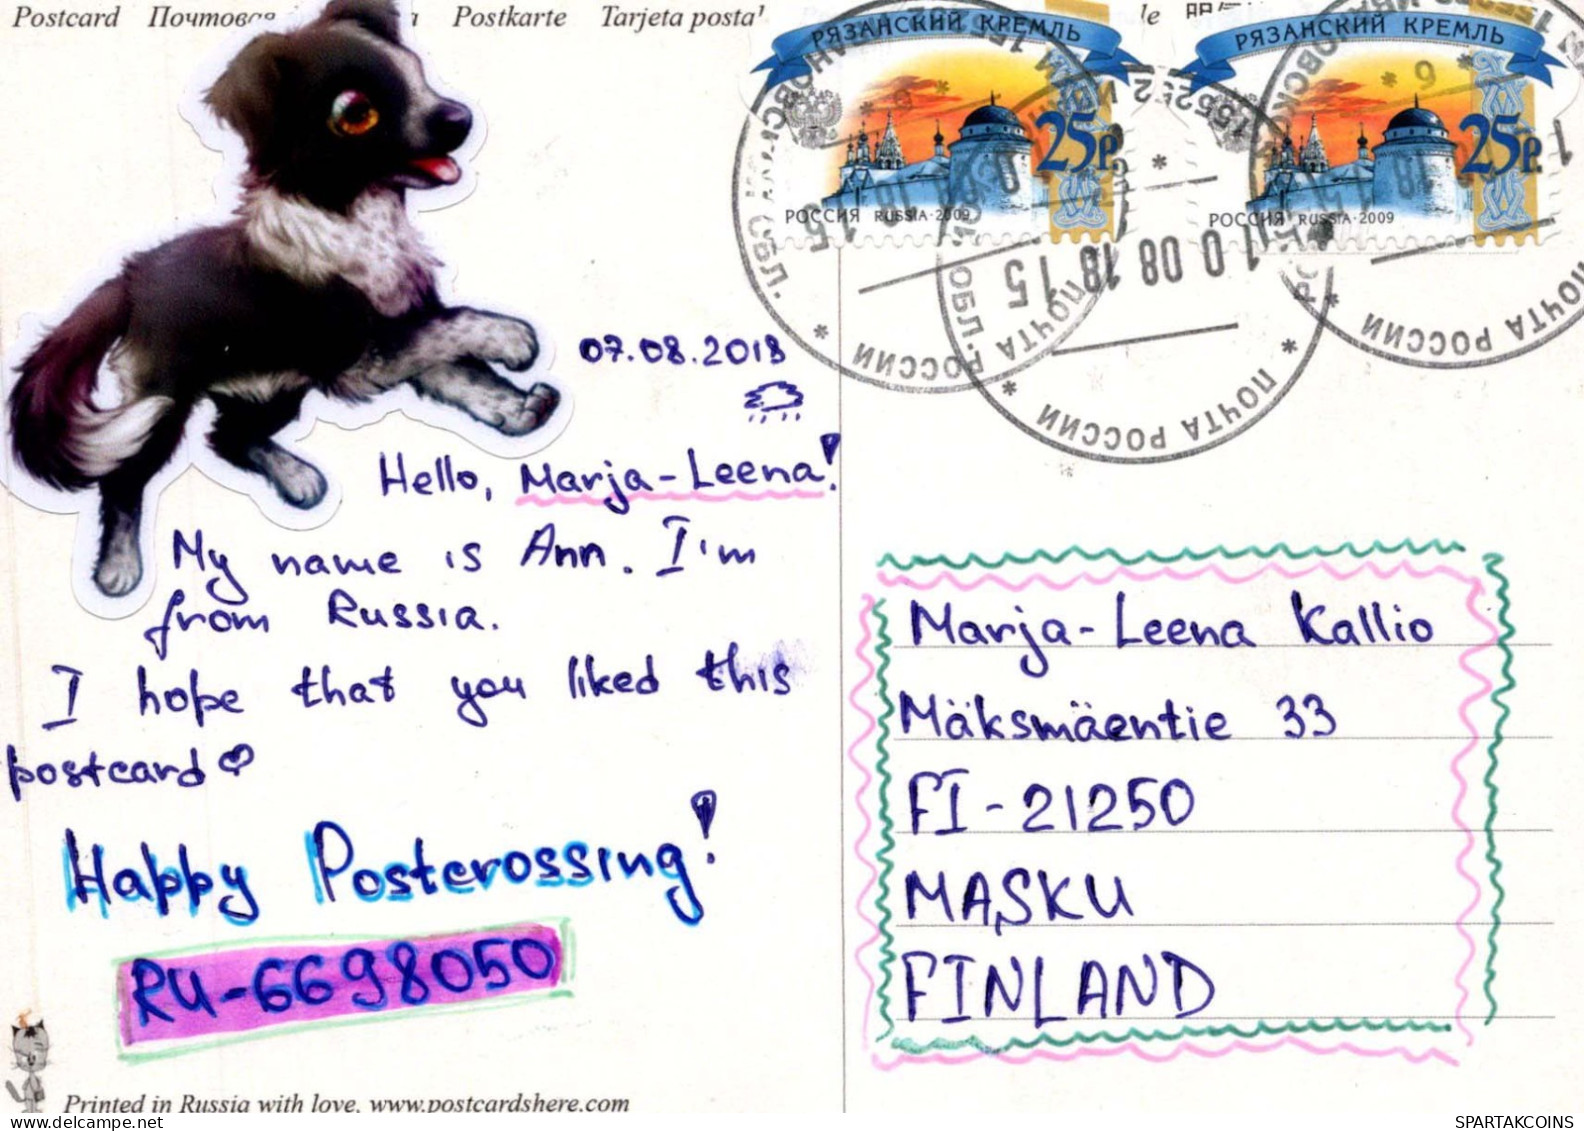 Postcard Почтовая Postkarte Tarjeta postal
РЯЗАНСКИЙ КРЕМЛЬ
25р
РОССИЯ RUSSIA·2009
РЯЗАНСКИЙ КРЕМЛЬ
25р
РОССИЯ RUSSIA·2009
ПОЧТА РОССИИ
10 08 18 15
ПОЧТА РОССИИ
ПОЧТА РОССИИ
07.08.2018
Hello, Marja-Leena!
My name is Ann. I'm
from Russia.
I hope that you liked this
postcard
Happy Postcrossing!
RU-6698050
Marja-Leena Kallio
Mäksmäentie 33
FI-21250
MASKU
FINLAND
Printed in Russia with love, www.postcardshere.com
SPARTAKCOINS